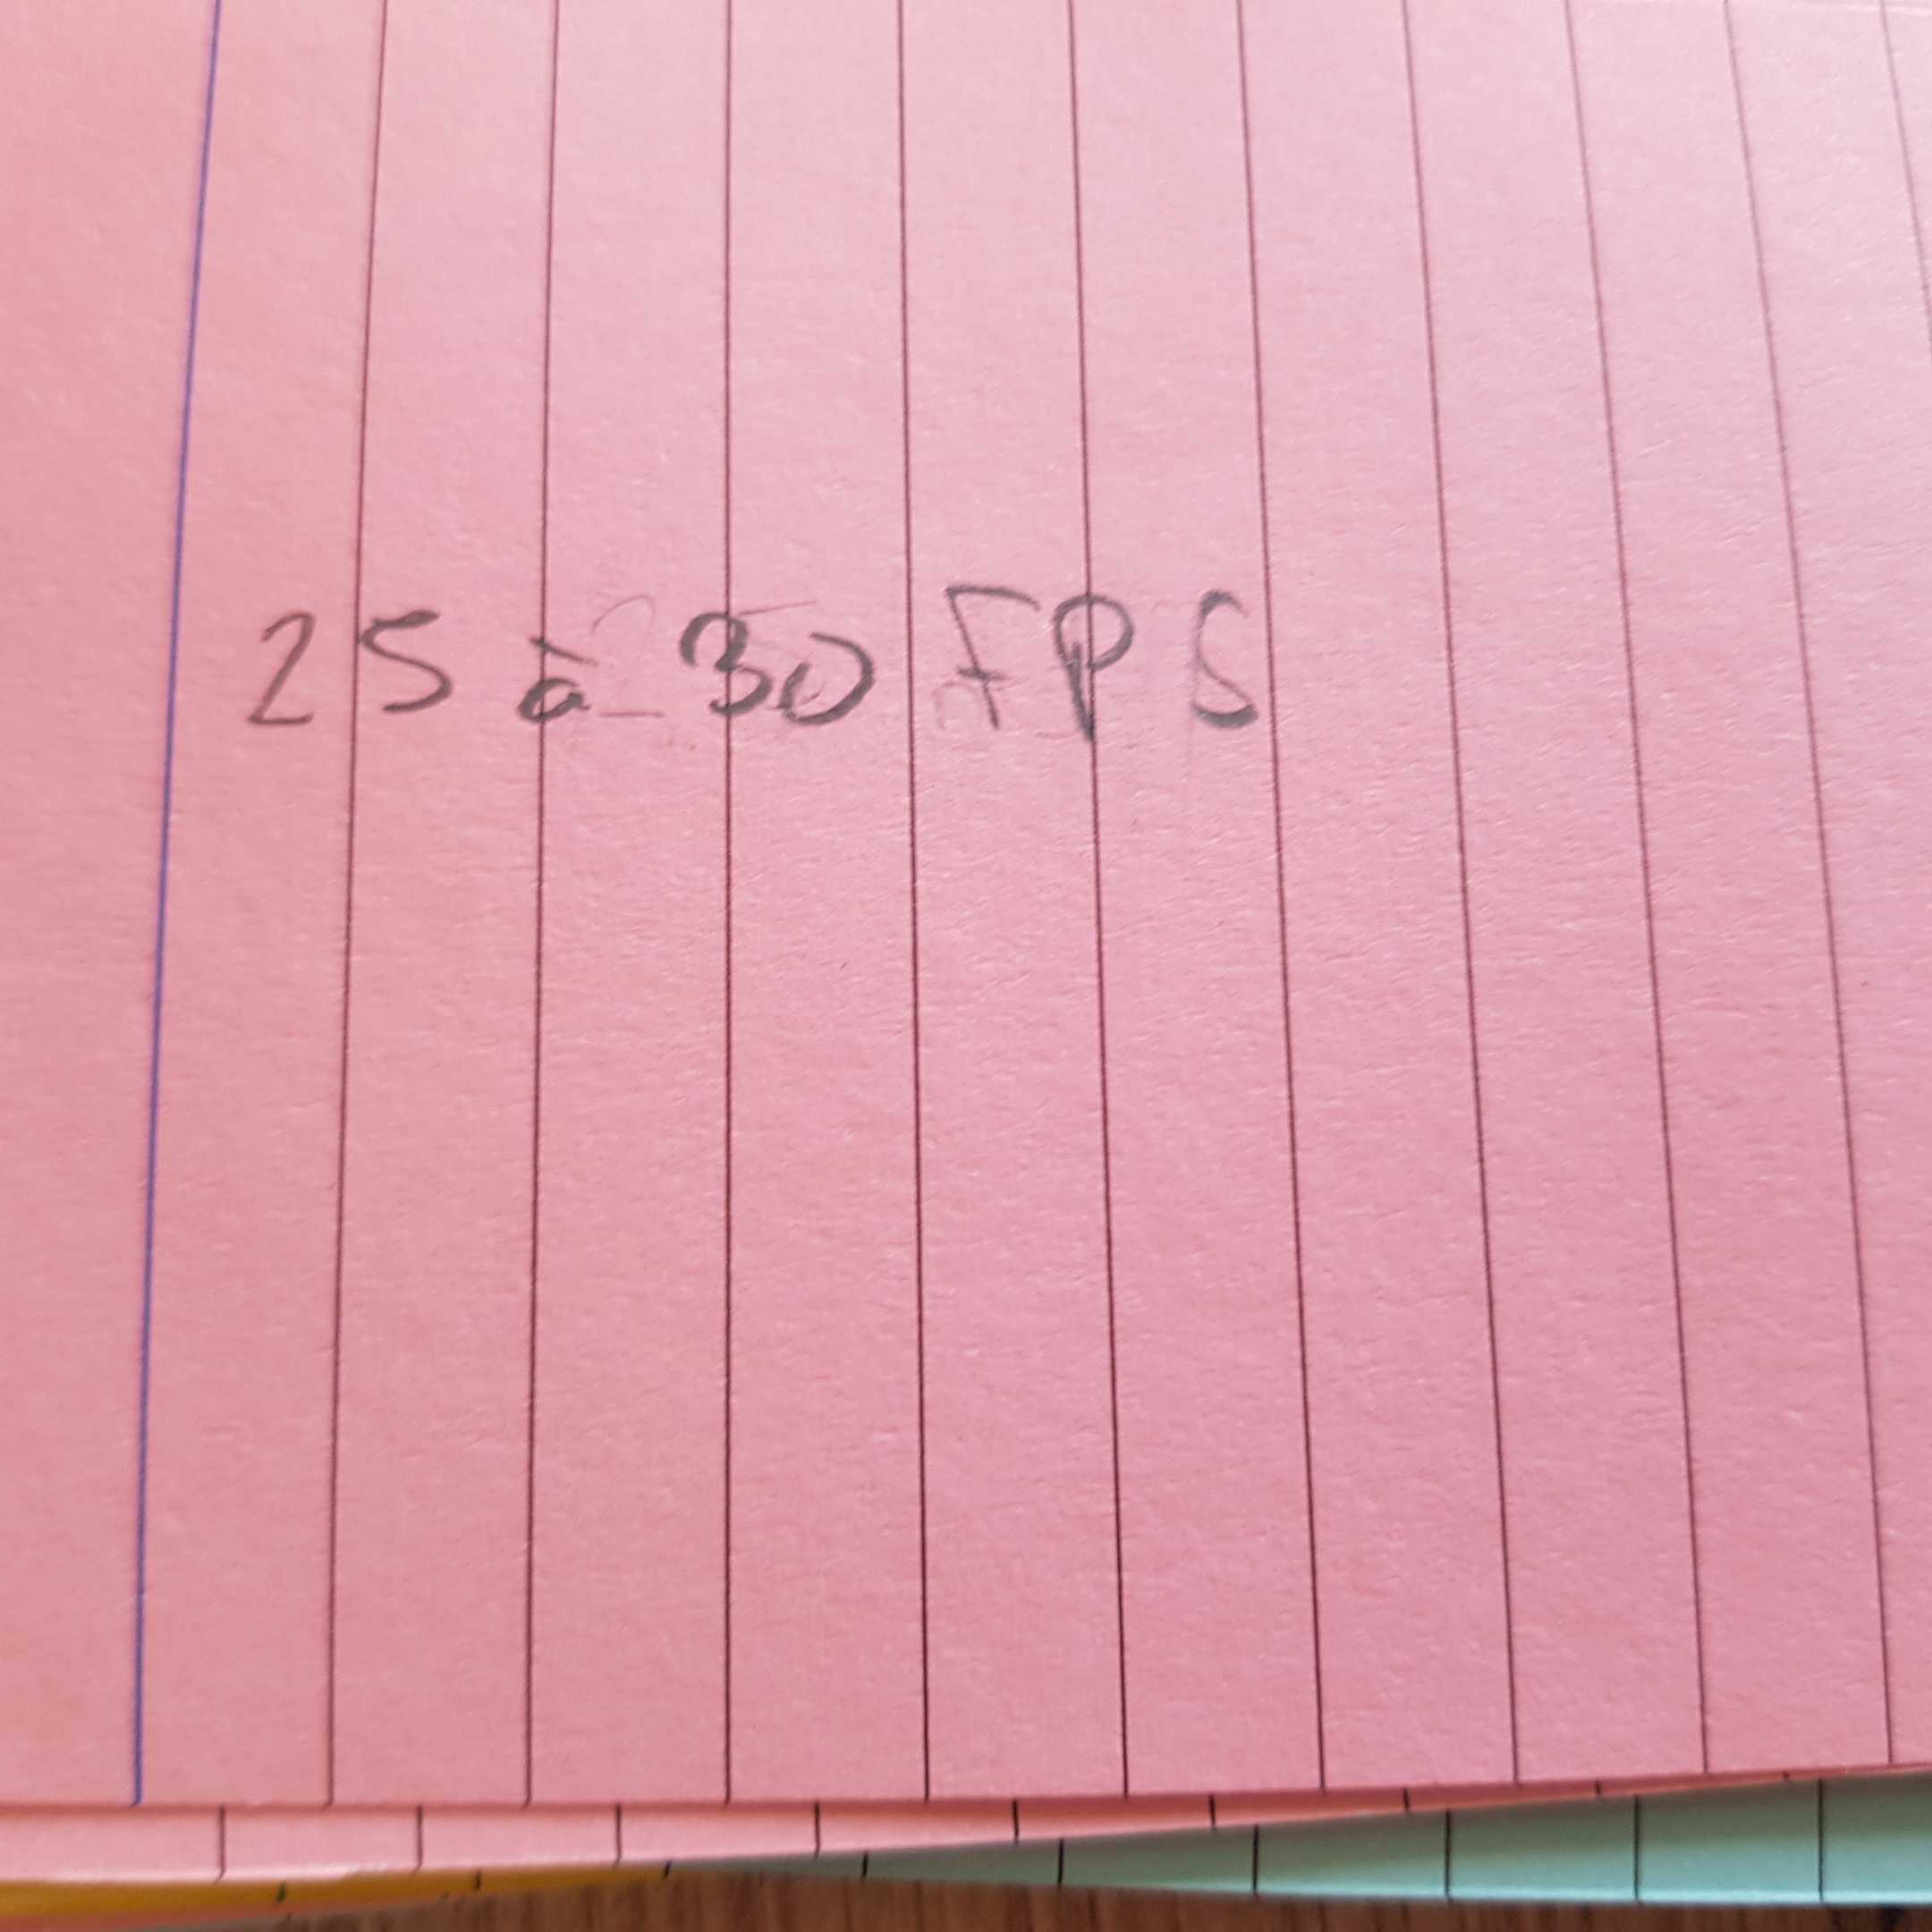 25 à 30 FPS